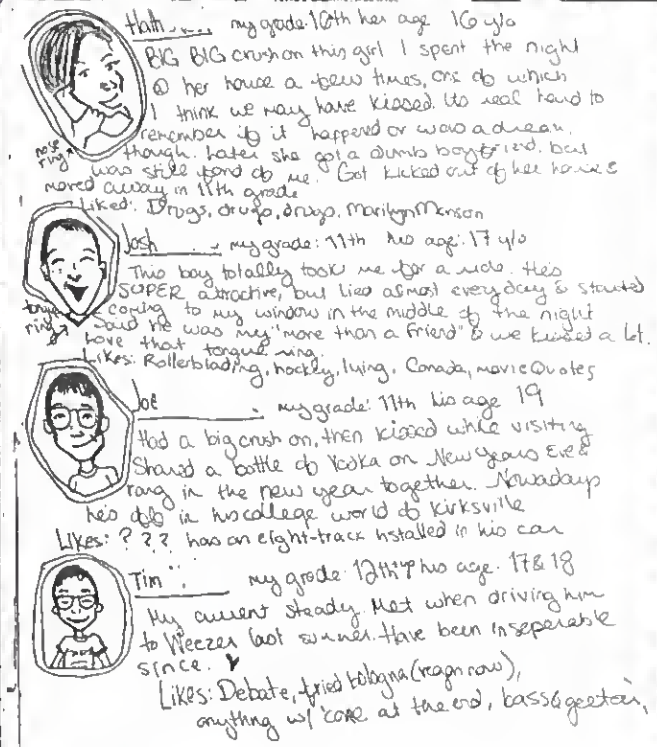 my grade: 10th her age 16 y/o
BIG BIG crush on this girl I spent the night
@ her house a few times, one of which
I think we may have kissed. Its real hard to
remember if it happened or was a dream,
though. Later she got a dumb boyfriend, but
was still fond of me. Got kicked out of her house &
moved away in 11th grade
Liked: Drugs, drugs, drugs, Marilyn Manson
nose
ring
Josh my grade: 11th his age: 17 y/o
This boy totally took me for a ride. He's
SUPER attractive, but lied almost everyday & started
coming to my window in the middle of the night
Said he was my "more than a friend" & we kissed a lot.
Love that tongue ring.
Likes: Rollerblading, hockey, lying, Canada, movie Quotes
tongue
ring
Joe my grade: 11th his age 19
Had a big crush on, then kissed while visiting
Shared a bottle of Vodka on New Years Eve &
rang in the new year together. Nowadays
he's off in his college world of Kirksville
Likes: ? ? ? has an eight-track installed in his car
Tim my grade: 12th his age: 17 & 18
My current steady. Met when driving him
to Weezer last summer. Have been inseperable
since. ♥
Likes: Debate, fried bologna (vegan now),
anything w/ 'core at the end, bass & geetar,